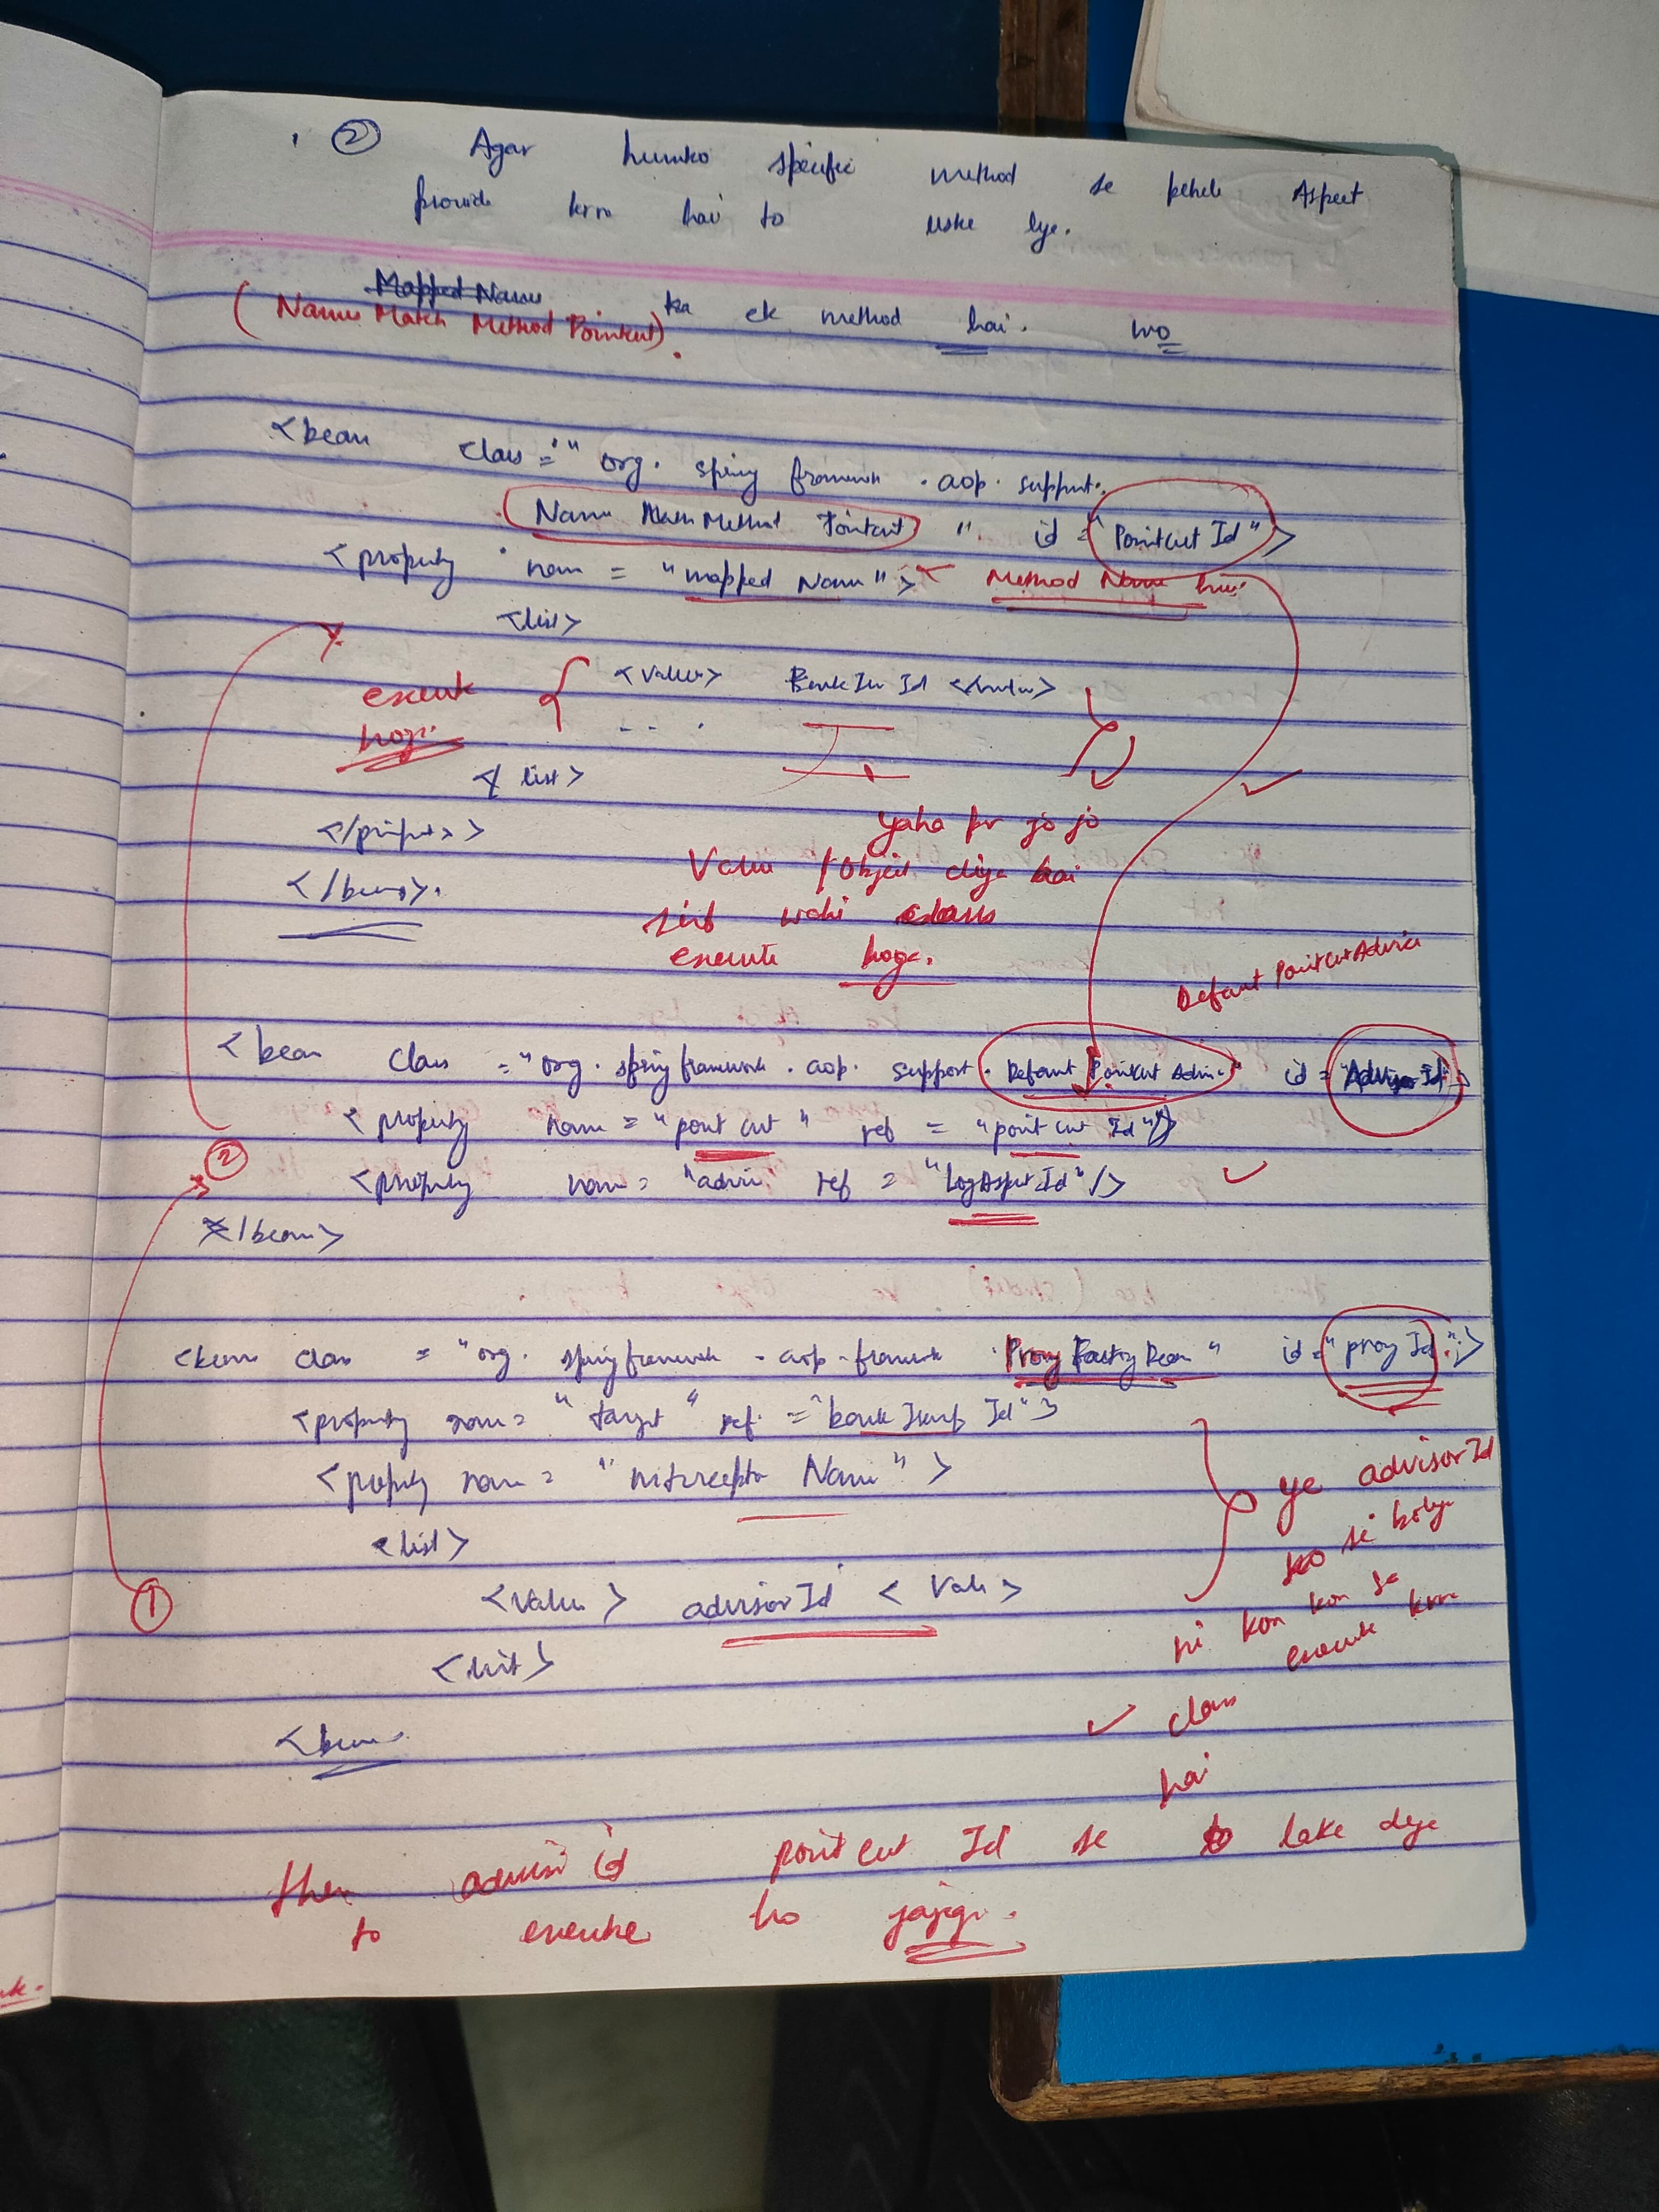 ② Agar humko specific method se pehele Aspect
provide krna hai to uske lye.
Mapped Name
(Name Match Method Pointcut) ka ek method hai. wo
<bean class = "org. spring framework . aop. support.
Name Match Method Pointcut" id = "Pointcut Id">
<property name = "mapped Name"> Method Name hai.
<list>
execute { <value> BankInId </value>
hogi. - - .
</list>
yaha pr jo jo
</property>
Value / Object diya hai
</bean>.
sirf wahi class
execute hoga.
Defaut PointCut Advice
<bean class = "org. springframework . aop. support. Defaut Pointcut Advi" id = "AdvisorId">
<property name = "point cut" ref = "point cut Id"/>
② <property name = "advi" ref = "LogAspectId"/>
</bean>
<bean class = "org. springframework - aop - framework .Proxy Factory Bean" id = "proxy Id">
<property name = "target" ref = "bank Id">
<property name = "intercepto Name">
ye advisorId
<list>
ko se
① <value> advisorId < Valu >
ki kon kon se
execute krna
<list>
class
<bean
hai
then advisor id point cut Id se to lake dye
to execute ho jayegi.